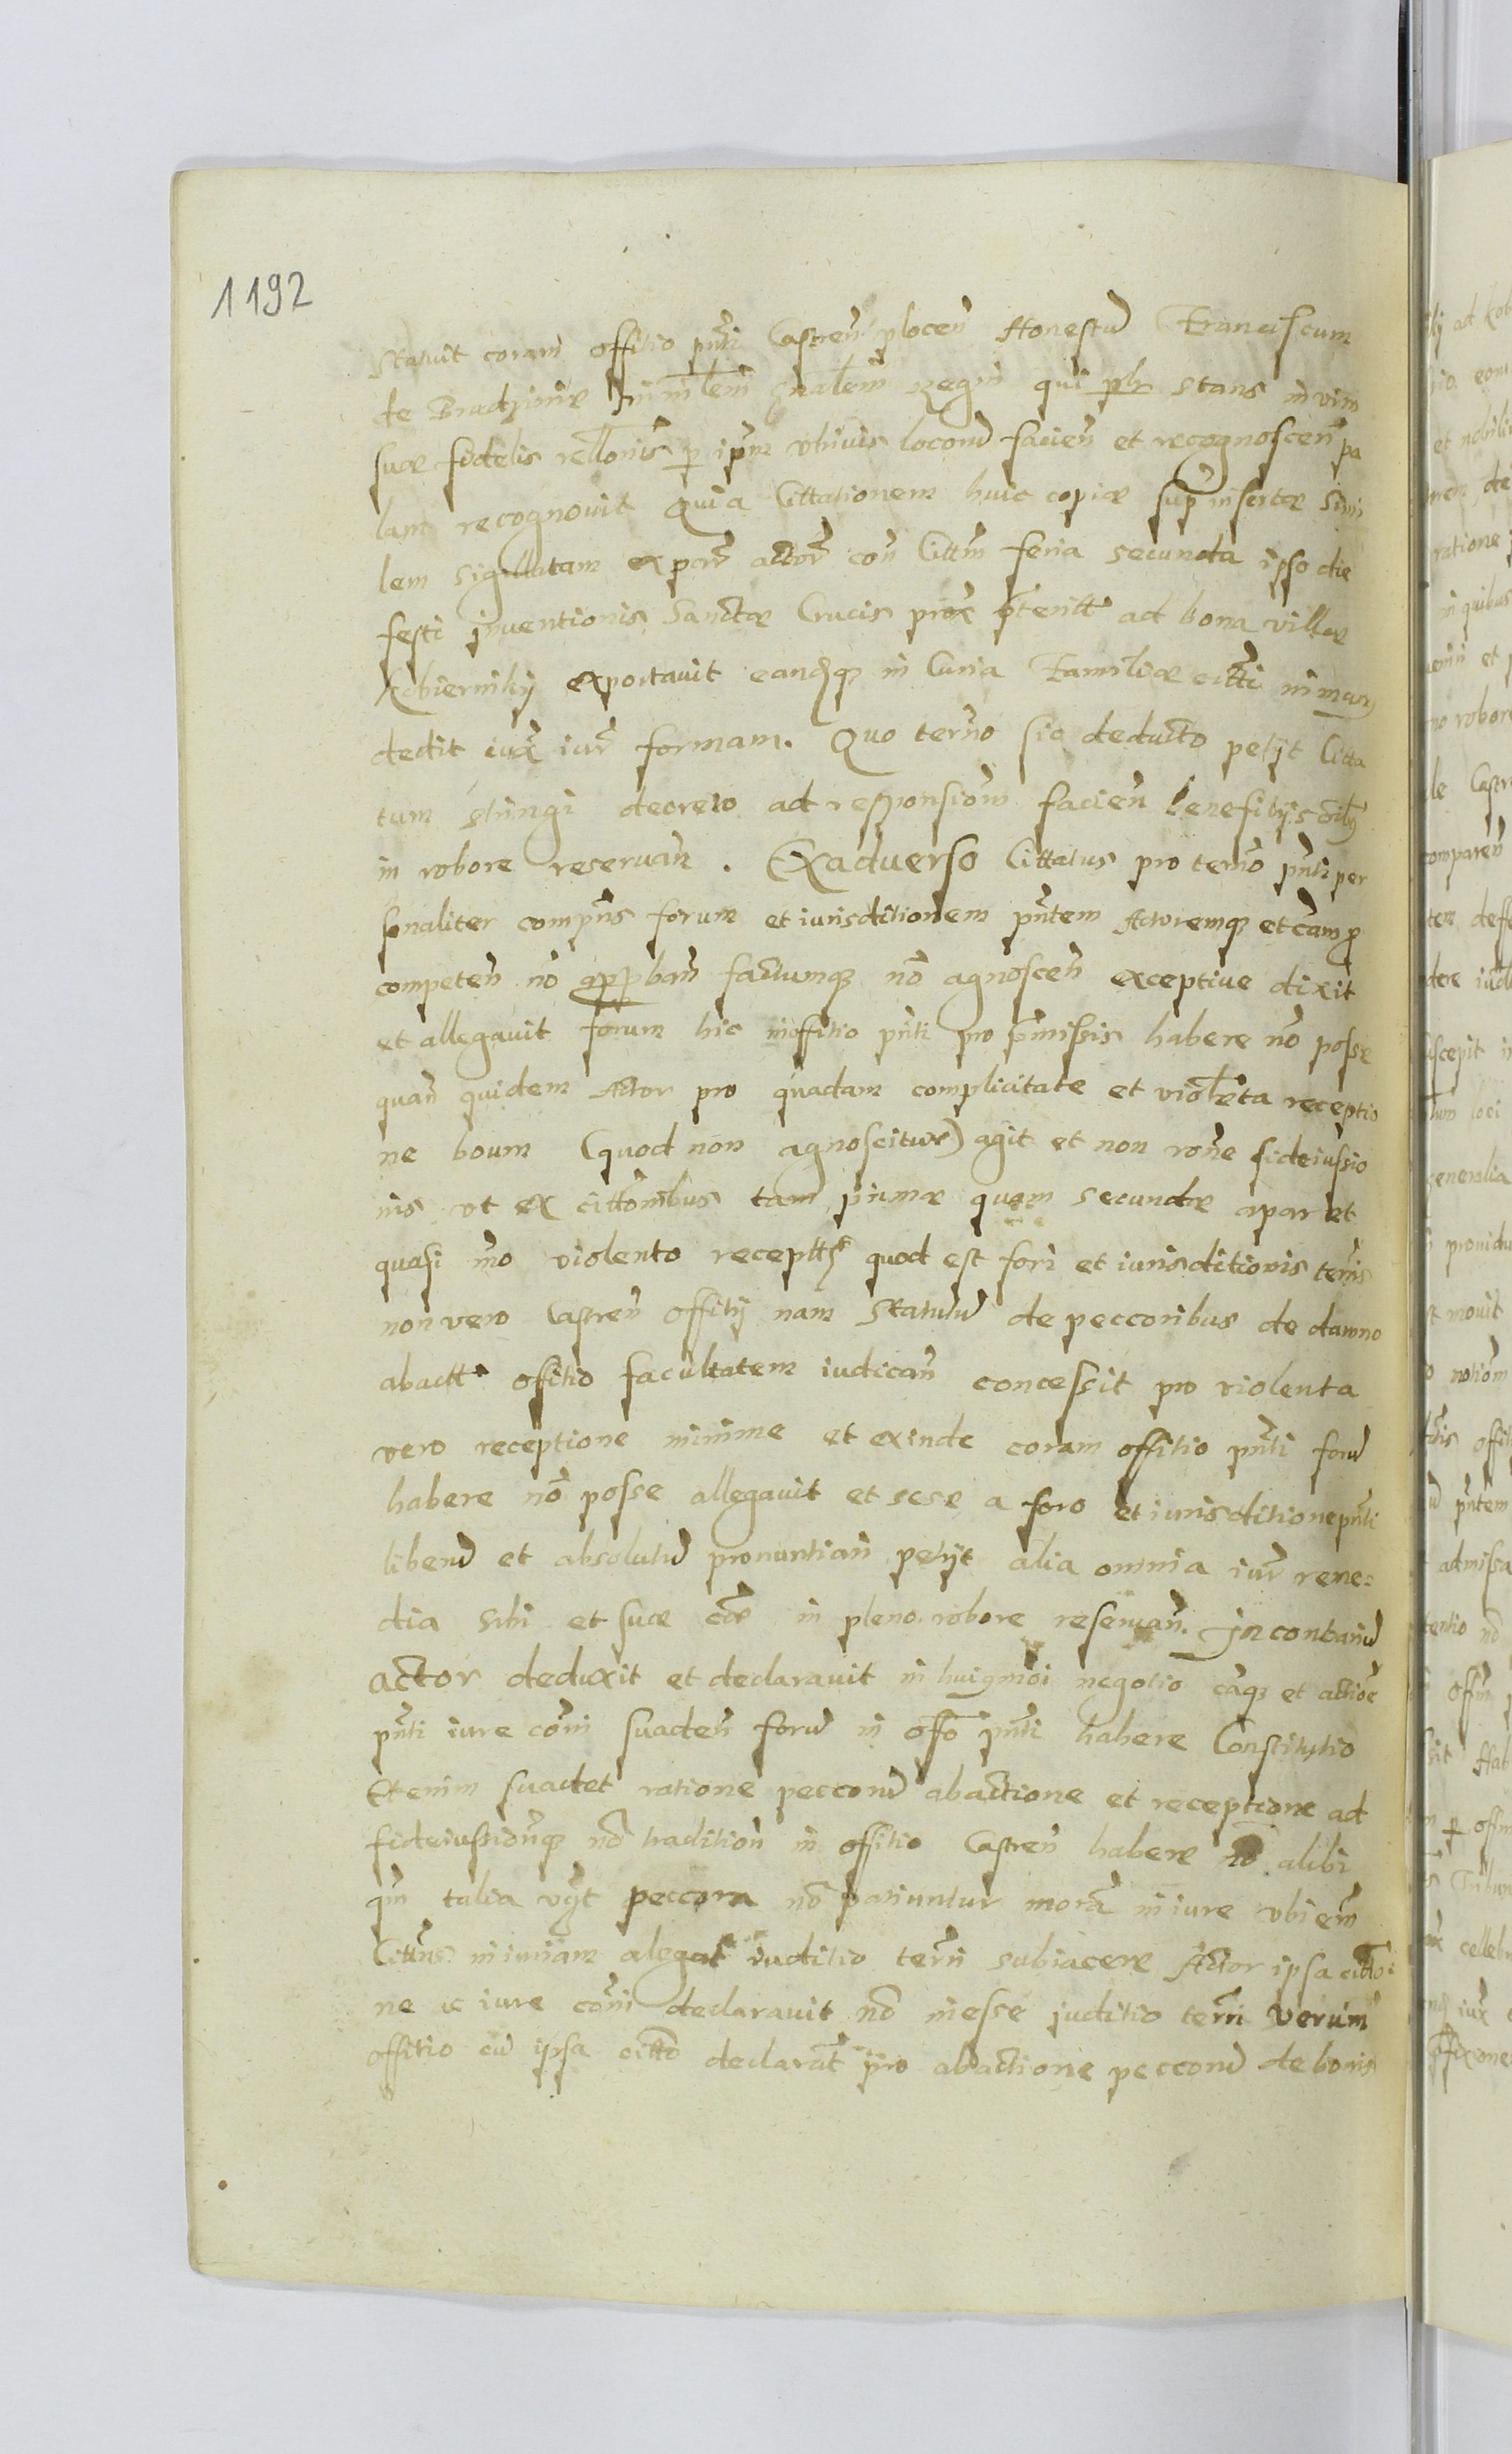 1192
Statuit coram offitio pnti Castren plocen Honestu Franciscum
de Bradzimie minlem gnalem Regni qui plr stans in vim
suæ fidelis rellonis p ipm vbiuis locoru facien et recognoscen pa
lam recognouit Quia Cittationem huic copiæ sup insertæ simi
lem sigillatam ex par actor con Cittm feria secunda ipso die
festi inuentionis Sanctæ Crucis prox pteritt ad bona villæ
Kobierniky exportauit eandq in Curia Familiæ eiusd
dedit iux iur formam. Quo termo sic deducto petijt Citta
tum stringi decreto ad responsiom facien benefitijs oibg
in robore reseruan. Exaduerso Cittatus pro termo pnti per
sonaliter compns forum et iurisditionem pntem Actoremq et cam p
competen no approban factumq no agnoscen exceptiue dixit
et allegauit forum hic in offitio pnti pro pmissis habere no posse
quan quidem Actor pro quadam complicitate et violeta receptio
ne boum (quod non agnoscitur) agit et non rone fideiussio
nis vt ex cittombus tam primæ quam secundæ aparet
quasi mo violento receptts quod est fori et iurisditionis terris
non vero Castren offitij nam Statutu de peccoribus de damno
abactt offitio facultatem iudican concessit pro violenta
vero receptione minime et exinde coram offitio pnti foru
habere no posse allegauit et sese a foro et iurisditione pnti
liberu et absolutu pronuntian petijt alia omnia iur reme=
dia sibi et suæ cæ in pleno robore reseruan. In contrariu
actor deduxit et declarauit in huigmoi negotio caq et actioe
pnti iure comi suaden foru in offo pnti habere Constitutio
Etenim suadet ratione peccoru abactione et receptione ad
fideiussionq no tradition in offitio Castren habere no alibi
qn talia vijt peccora no patiuntur mora in iure vbi em
Cittus iniuriam alegat iuditio terri subiacere Actor ipsa citto
ne ac iure comi declarauit no inesse juditio terri Verum
offitio cu ipsa citto declarat pro abactione peccoru de bonis